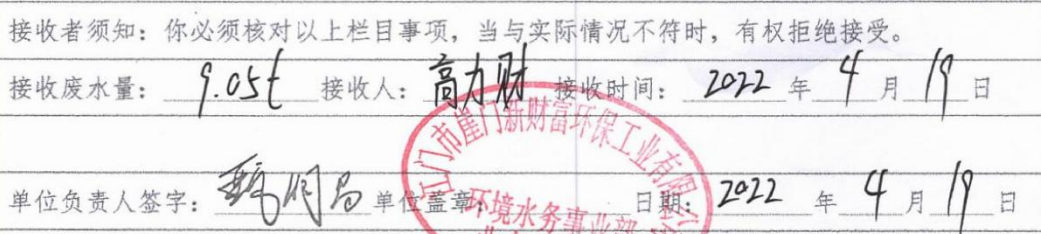 接收者须知：你必须核对以上栏目事项，当与实际情况不符时，有权拒绝接受。
接收废水量：9.05t 接收人：高力财 接收时间：2022年4月19日
江门市崖门新财富环保工业有限公
单位负责人签字：甄炯 单位盖章： 日期：2022年4月19日
环境水务事业部